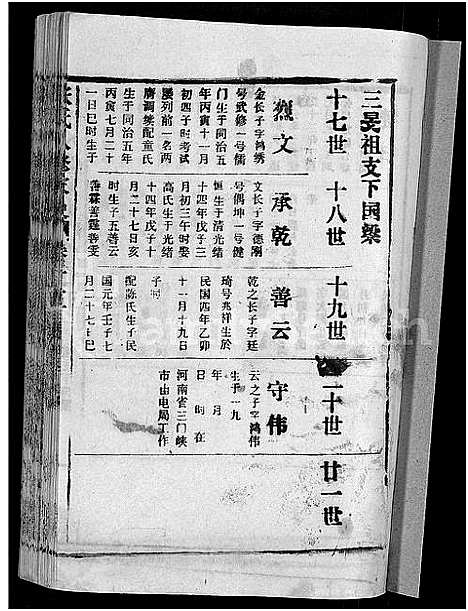 三晏祖支下国槃
十七世
十八世
十九世
二十世
廿一世
烈文
金长子字鸿绣
号武修一号儒
门生于同治五
年丙寅十一月
初四子时考试
屡列前一名两
膺调续配童氏
生于同治五年
丙寅七月二十
一日巳时生子
承乾
文长子字德刚
号偶坤一号健
恒生于清光绪
十四年戊子十
月初三午时娶
高氏生于光绪
十四年戊子十
月二十七日亥
时生子五善云
善霖善霆善雯
善云
乾之长子字廷
琦号兆祥生於
民国四年乙卯
十一月十九日
子时
配陈氏生于民
国元年壬子七
月二十七巳
守伟
云之子字鸿伟
生于一九
年 月
日 时在
河南省三门峡
市由电局工作